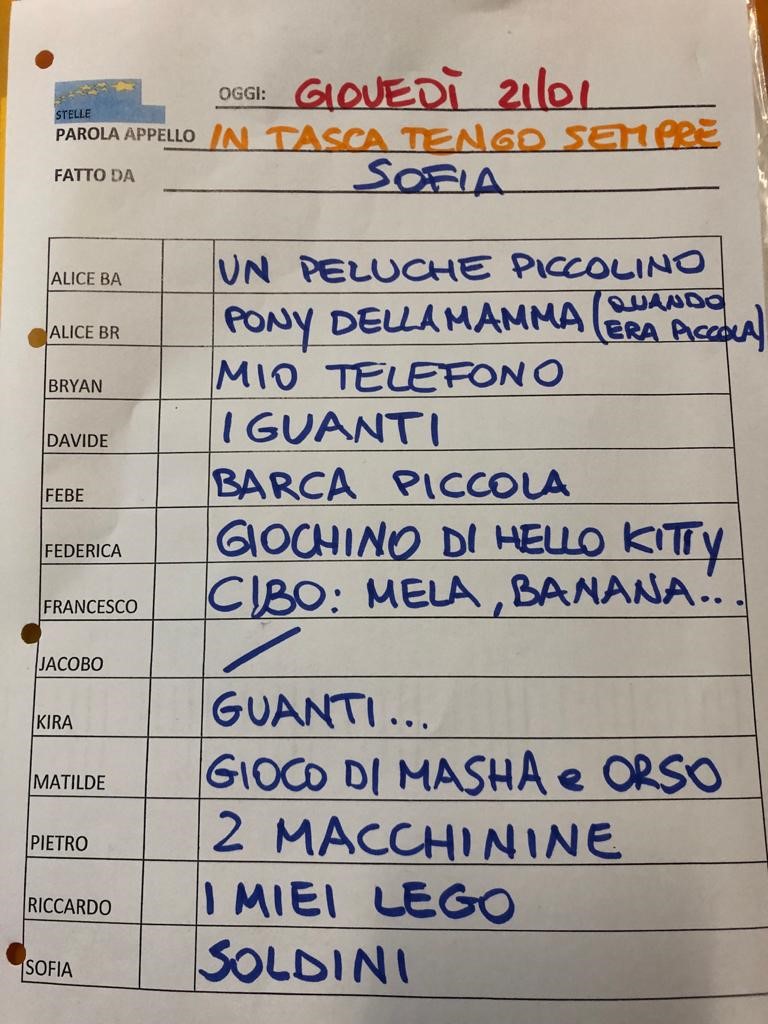 OGGI: GIOVEDÌ 21/01
STELLE
PAROLA APPELLO IN TASCA TENGO SEMPRE
FATTO DA SOFIA
ALICE BA UN PELUCHE PICCOLINO
ALICE BR PONY DELLA MAMMA (QUANDO
ERA PICCOLA)
BRYAN MIO TELEFONO
DAVIDE I GUANTI
FEBE BARCA PICCOLA
FEDERICA GIOCHINO DI HELLO KITTY
FRANCESCO CIBO: MELA, BANANA...
JACOBO /
KIRA GUANTI...
MATILDE GIOCO DI MASHA e ORSO
PIETRO 2 MACCHININE
RICCARDO I MIEI LEGO
SOFIA SOLDINI